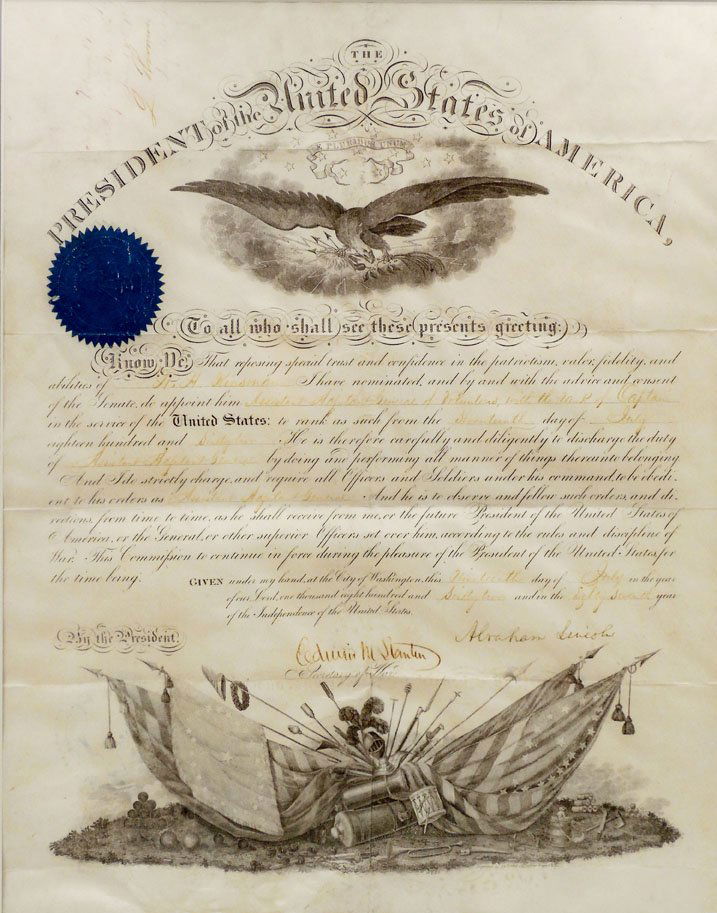 THE
PRESIDENT of the United States of AMERICA,
E PLURIBUS UNUM
To all who shall see these presents greeting:
Know Ye, That reposing special trust and confidence in the patriotism, valor, fidelity, and
abilities of I have nominated, and by and with the advice and consent
of the Senate, do appoint him Assistant Adjutant General of Volunteers, with the rank of Captain
in the service of the United States: to rank as such from the day of July
eighteen hundred and Sixty two He is therefore carefully and diligently to discharge the duty
of Assistant Adjutant General by doing and performing all manner of things thereunto belonging.
And I do strictly charge, and require all Officers and Soldiers under his command, to be obedi-
ent to his orders as Assistant Adjutant General And he is to observe and follow such orders, and di-
rections, from time to time, as he shall receive from me, or the future President of the United States of
America, or the General, or other superior Officers set over him, according to the rules and discipline of
War. This Commission to continue in force during the pleasure of the President of the United States, for
the time being.
GIVEN under my hand, at the City of Washington, this Nineteenth day of July in the year
of our Lord, one thousand eight hundred and Sixty two and in the Eighty Seventh year
of the Independence of the United States.
By the President.
Abraham Lincoln
Edwin M Stanton
Secretary of War